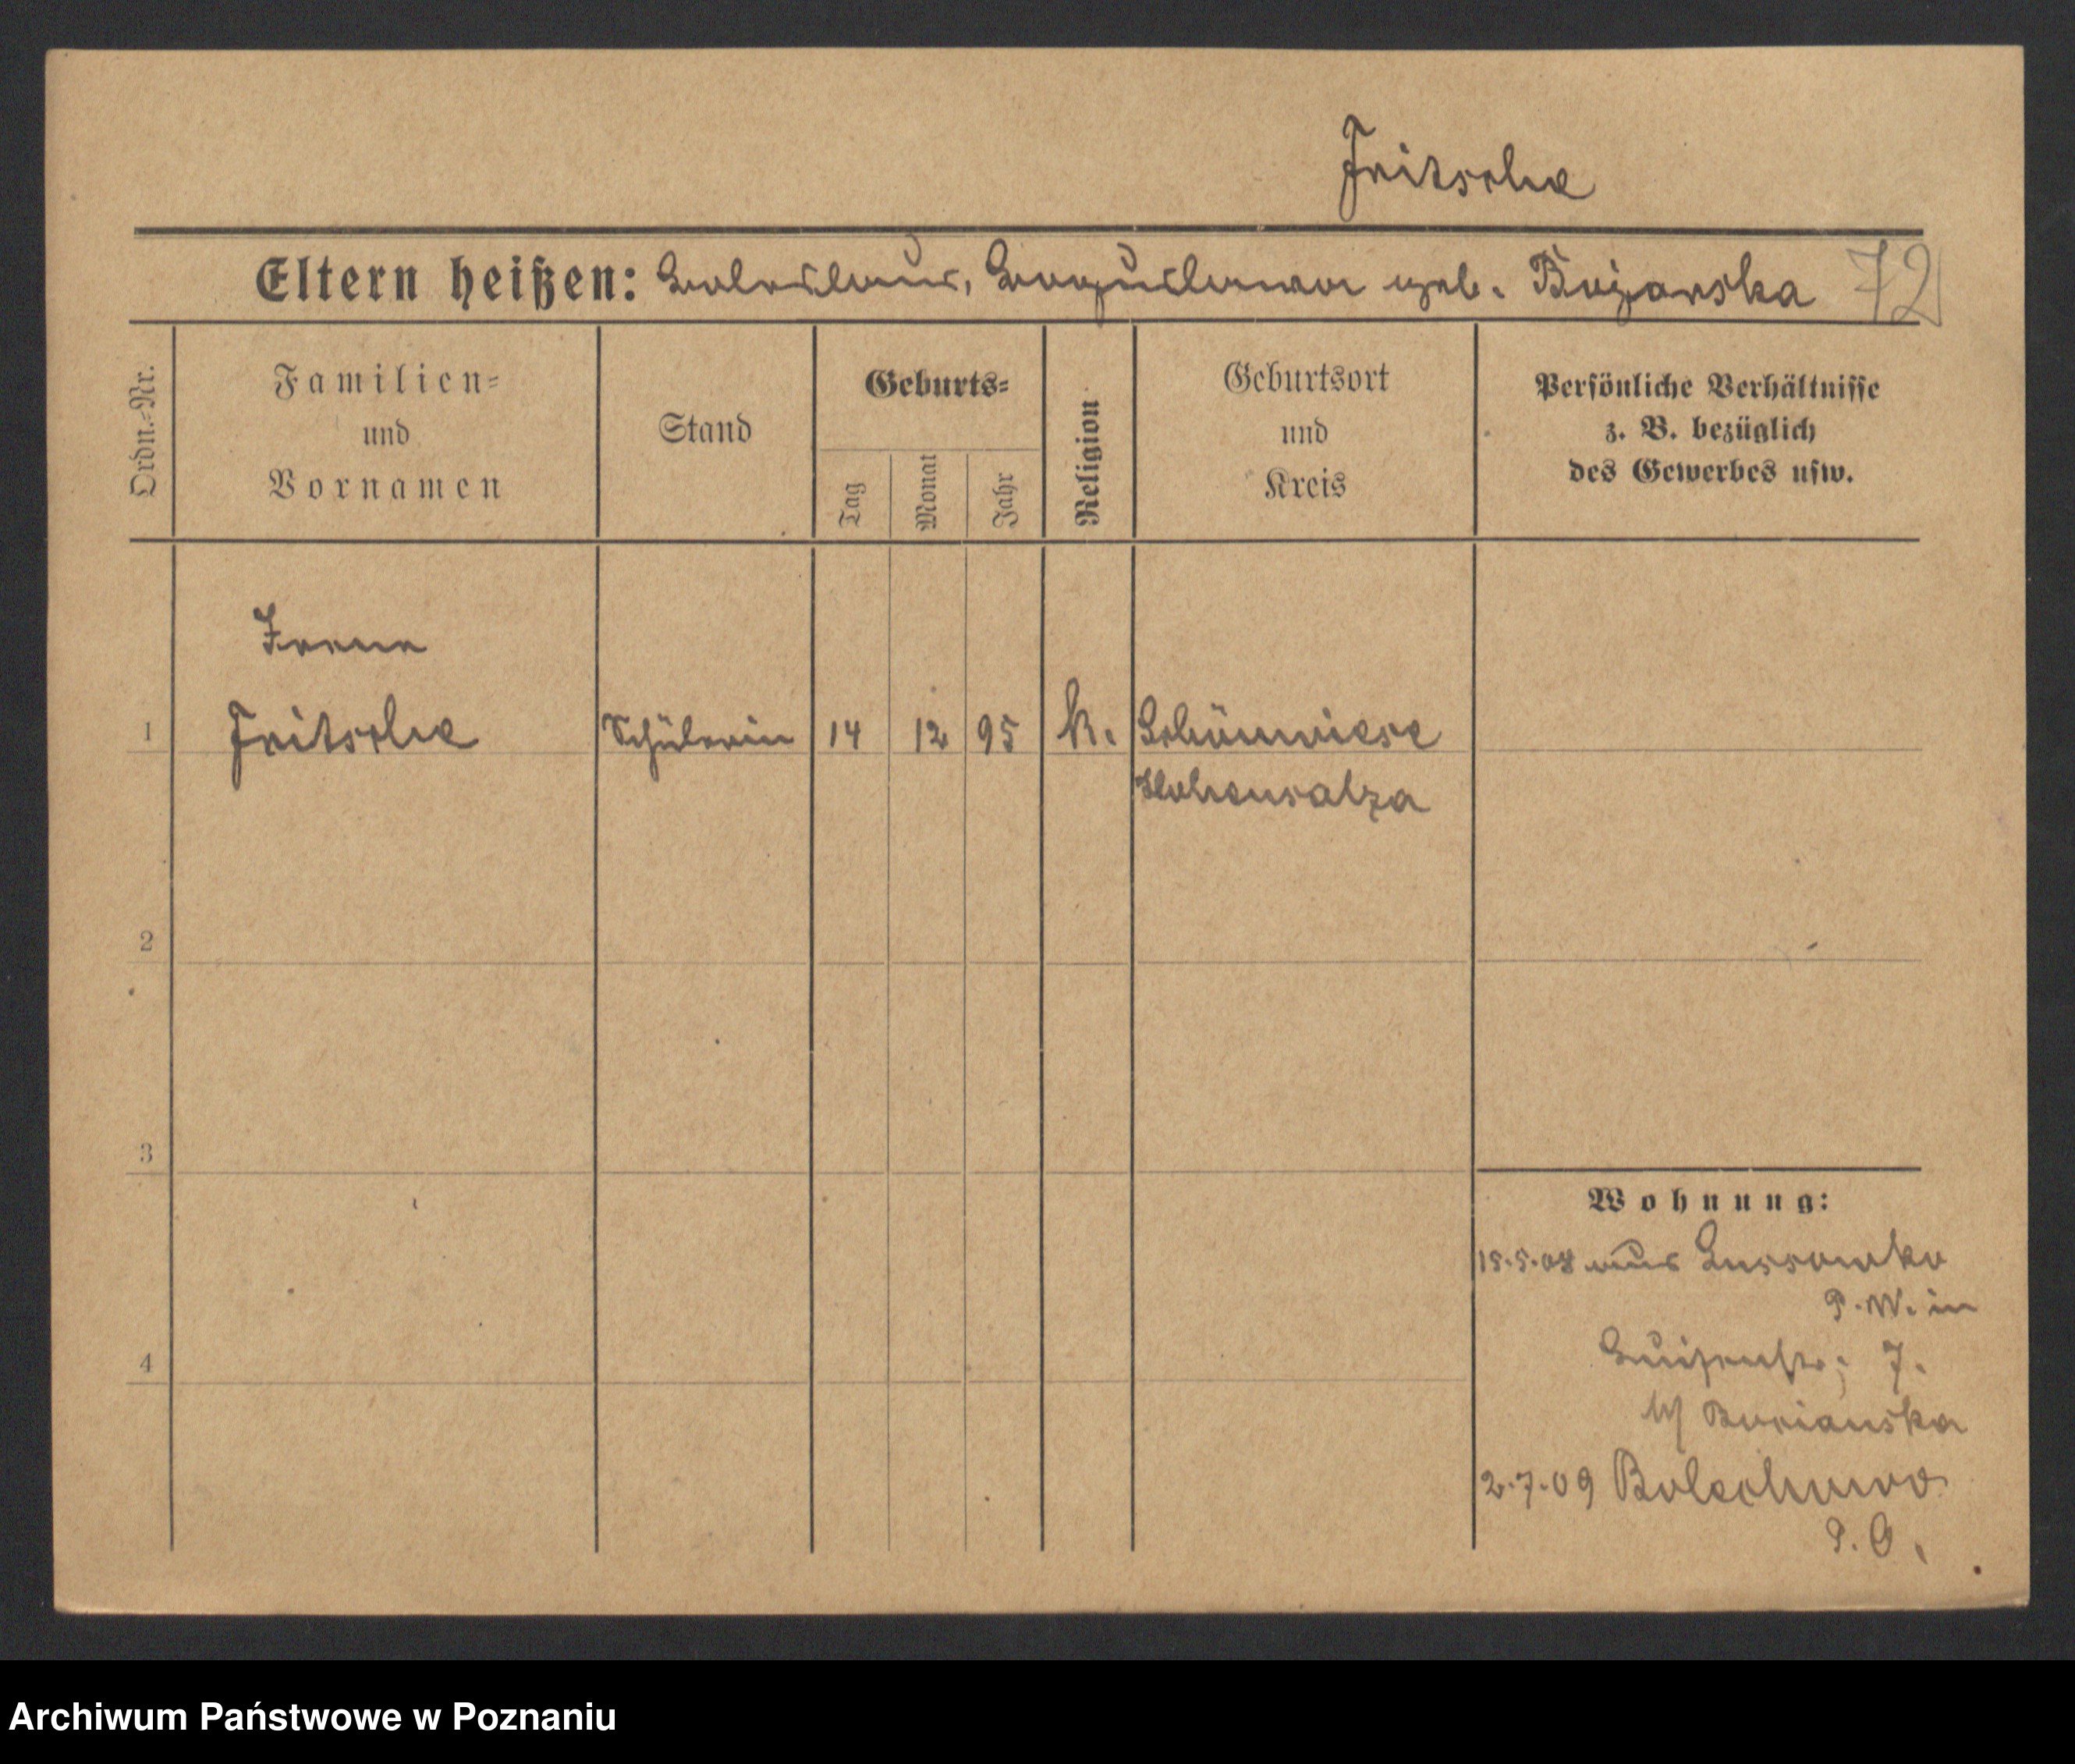 Fritsche
Eltern heißen: Boleslaus, Boguslawa geb. Bojanska 72
Ordn.-Nr.
Familien-
und
Vornamen
Stand
Geburts-
Tag
Monat
Jahr
Religion
Geburtsort
und
Kreis
Persönliche Verhältnisse
z. B. bezüglich
des Gewerbes usw.
Irene
1 Fritsche Schülerin 14 12 95 k. Schönwiese
Hohensalza
2
3
4
Wohnung:
15.5.08 aus Lussowko
P. W. in
Luisenstr. 7.
Bojanska
2.7.09 Bolechowo
P. O.
Archiwum Państwowe w Poznaniu